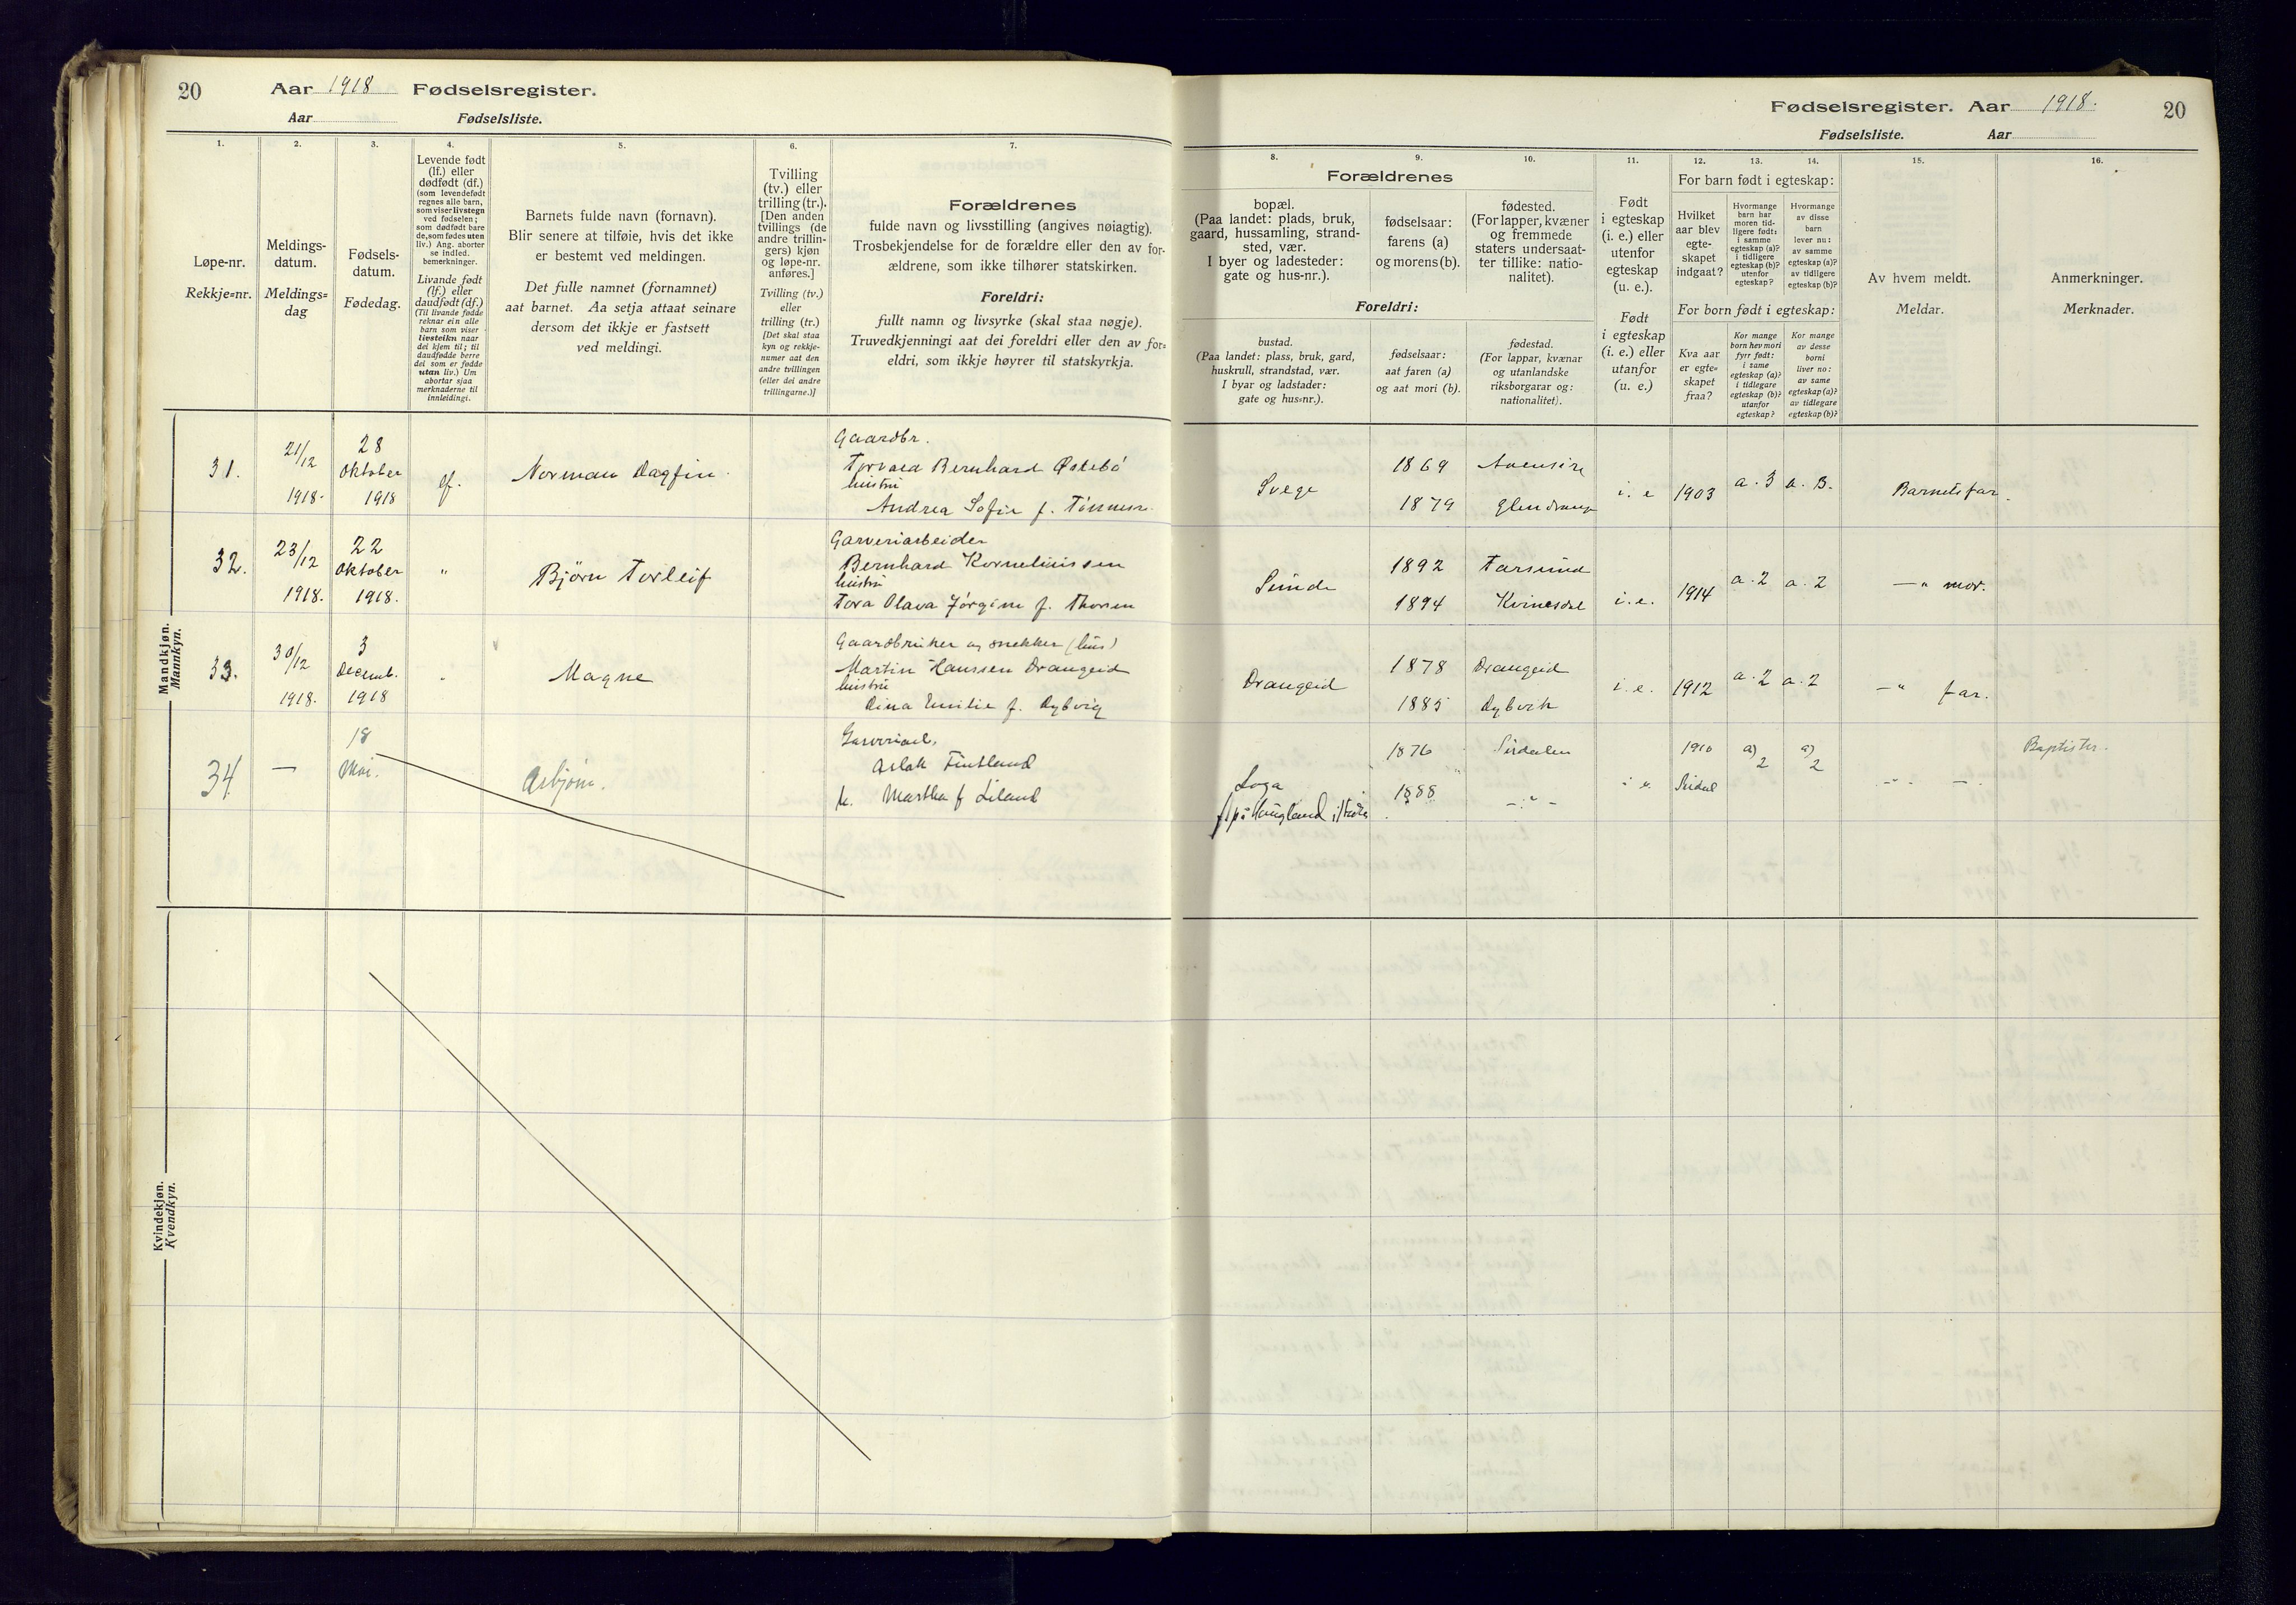 20 Aar 1918 Fødselsregister.
Aar Fødselsliste.
1. 2. 3. 4. 5. 6. 7.
Løpe-nr.
Rekkje=nr.
Meldings-
datum.
Meldings=
dag
Fødsels-
datum.
Fødedag.
Levende født
(lf.) eller
dødfødt (df.)
(som levendefødt
regnes alle barn,
som viser livstegn
ved fødselen;
som dødfødt bare
de, som fødes uten
liv.) Ang. aborter
se indled.
bemerkninger.
Livande født
(lf.) eller
daudfødt (df.)
(Til livande fødde
reknar ein alle
barn som viser
livsteikn naar
dei kjem til; til
daudfødde berre
dei som er fødde
utan liv.) Um
abortar sjaa
merknaderne til
innleidingi.
Barnets fulde navn (fornavn).
Blir senere at tilføie, hvis det ikke
er bestemt ved meldingen.
Det fulle namnet (fornamnet)
aat barnet. Aa setja attaat seinare
dersom det ikkje er fastsett
ved meldingi.
Tvilling
(tv.) eller
trilling (tr.).
[Den anden
tvillings (de
andre trillin-
gers) kjøn
og løpe-nr.
anføres.]
Tvilling (tv.)
eller
trilling (tr.)
[Det skal staa
kyn og rekkje-
numer aat den
andre tvillingen
(eller dei andre
trillingarne.)]
Forældrenes
fulde navn og livsstilling (angives nøiagtig).
Trosbekjendelse for de forældre eller den av for-
ældrene, som ikke tilhører statskirken.
Foreldri:
fullt namn og livsyrke (skal staa nøgje).
Truvedkjenningi aat dei foreldri eller den av for=
eldri, som ikkje høyrer til statskyrkja.
Mandkjøn.
Mannkyn.
31.
21/12
1918.
28
Oktober
1918
lf.
Norman Dagfin.
Gaardbr.
Torvald Bernhard Østebö
hustru
Andrea Sofie f. Tönnesn.
32.
23/12
1918.
22
Oktober
1918.
"
Björn Torleif
Garveriarbeider
Bernhard Korneliussen
hustru
Tora Olava Jörgine f. Thorsen
33.
30/12
1918.
3
Decemb.
1918
"
Magne
Gaardbruker og snekker (hus)
Martin Hanssen Drangeid
hustru
Dina Emilie f. Dybvig
34
—
18
Mai.
Asbjörn.
Aslak Fintland
h. Martha f Liland
Kvindekjøn.
Kvendkyn.
Fødselsregister. Aar 1918. 20
Fødselsliste. Aar
8. 9. 10. 11. 12. 13. 14. 15. 16.
Forældrenes
bopæl.
(Paa landet: plads, bruk,
gaard, hussamling, strand-
sted, vær.
I byer og ladesteder:
gate og hus-nr.).
fødselsaar:
farens (a)
og morens (b).
fødested.
(For lapper, kvæner
og fremmede
staters undersaat-
ter tillike: natio-
nalitet).
Foreldri:
bustad.
(Paa landet: plass, bruk, gard,
huskrull, strandstad, vær.
I byar og ladstader:
gate og hus=nr.).
fødselsaar:
aat faren (a)
og aat mori (b).
fødestad.
(For lappar, kvænar
og utanlandske
riksborgarar og:
nationalitet).
Født
i egteskap
(i. e.) eller
utenfor
egteskap
(u. e.).
Født
i egteskap
(i. e.) eller
utanfor
(u. e.)
For barn født i egteskap:
Hvilket
aar blev
egte-
skapet
indgaat?
Hvormange
barn har
moren tid-
ligere født:
i samme
egteskap (a)?
i tidligere
egteskap (b)?
utenfor
egteskap?
Hvormange
av disse
barn
lever nu:
av samme
egteskap (a)?
av tidligere
egteskap (b)?
For born født i egteskap:
Kva aar
er egte=
skapet
fraa?
Kor mange
born hev mori
fyrr født:
i same
egteskap (a)?
i tidlegare
egteskap (b)?
utanfor
egteskap?
Kor mange
av desse
borni
liver no:
av same
egteskap (a)?
av tidlegare
egteskap (b)?
Av hvem meldt.
Meldar.
Anmerkninger.
Merknader.
Svege
1869
1879
i. e 1903 a. 3 a. 3. Barnets far.
Sunde
1892 Farsund
1894 Kvinesdal
i. e. 1914 a. 2 a. 2 —" mor.
Drangeid
1878 Drangeid
1885 Dybvik
i. e. 1912 a. 2 a. 2 —" far.
Loga
f på Haugland i
1876 Sirdalen
1888 —"—
i e. 1910
Sirdal
a) 2 a) 2
Baptister.